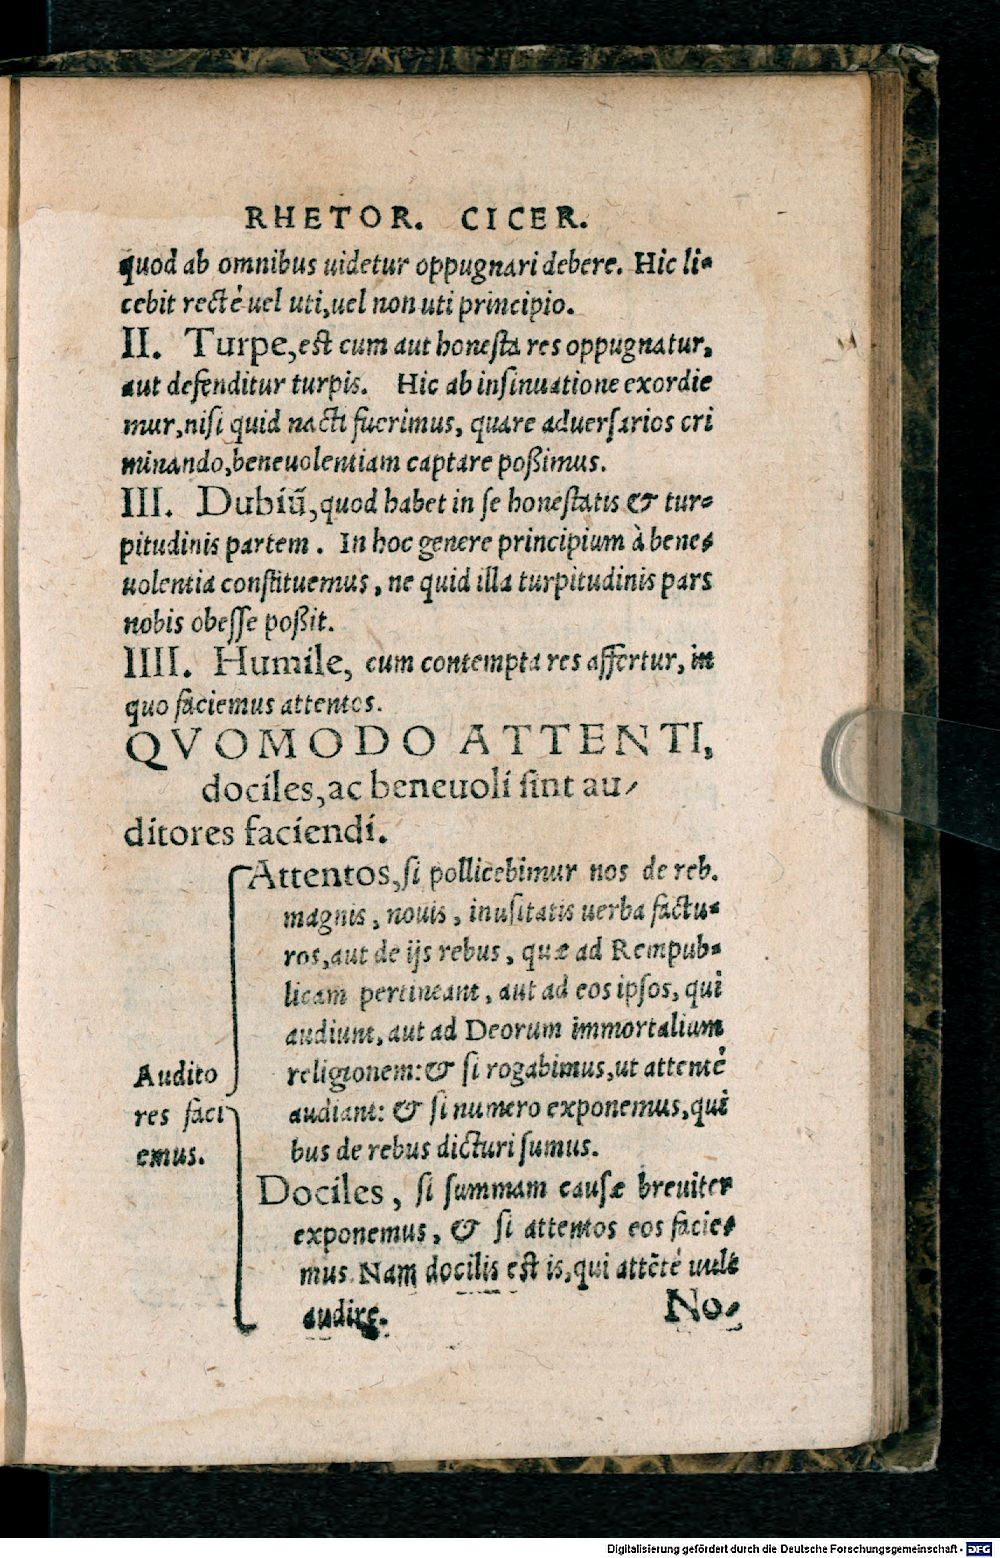 RHETOR. CICER.
quod ab omnibus uidetur oppugnari debere. Hic li-
cebit rectè uel uti, uel non uti principio.
II. Turpe, est cum aut honesta res oppugnatur,
aut defenditur turpis. Hic ab insinuatione exordie
mur, nisi quid nacti fuerimus, quare aduersarios cri
minando, beneuolentiam captare poßimus.
III. Dubiũ, quod habet in se honestatis & tur-
pitudinis partem. In hoc genere principium à bene-
uolentia constituemus, ne quid illa turpitudinis pars
nobis obesse poßit.
IIII. Humile, cum contempta res affertur, in
quo faciemus attentos.
QVOMODO ATTENTI,
dociles, ac beneuoli sint au-
ditores faciendi.
Audito
res faci
emus.
Attentos, si pollicebimur nos de reb.
magnis, nouis, inusitatis uerba factu-
ros, aut de ijs rebus, quæ ad Rempub-
licam pertineant, aut ad eos ipsos, qui
audiunt, aut ad Deorum immortalium
religionem: & si rogabimus, ut attentè
audiant: & si numero exponemus, qui
bus de rebus dicturi sumus.
Dociles, si summam causæ breuiter
exponemus, & si attentos eos facie-
mus. Nam docilis est is, qui attẽté uult
audire.
No-
Digitalisierung gefördert durch die Deutsche Forschungsgemeinschaft - DFG